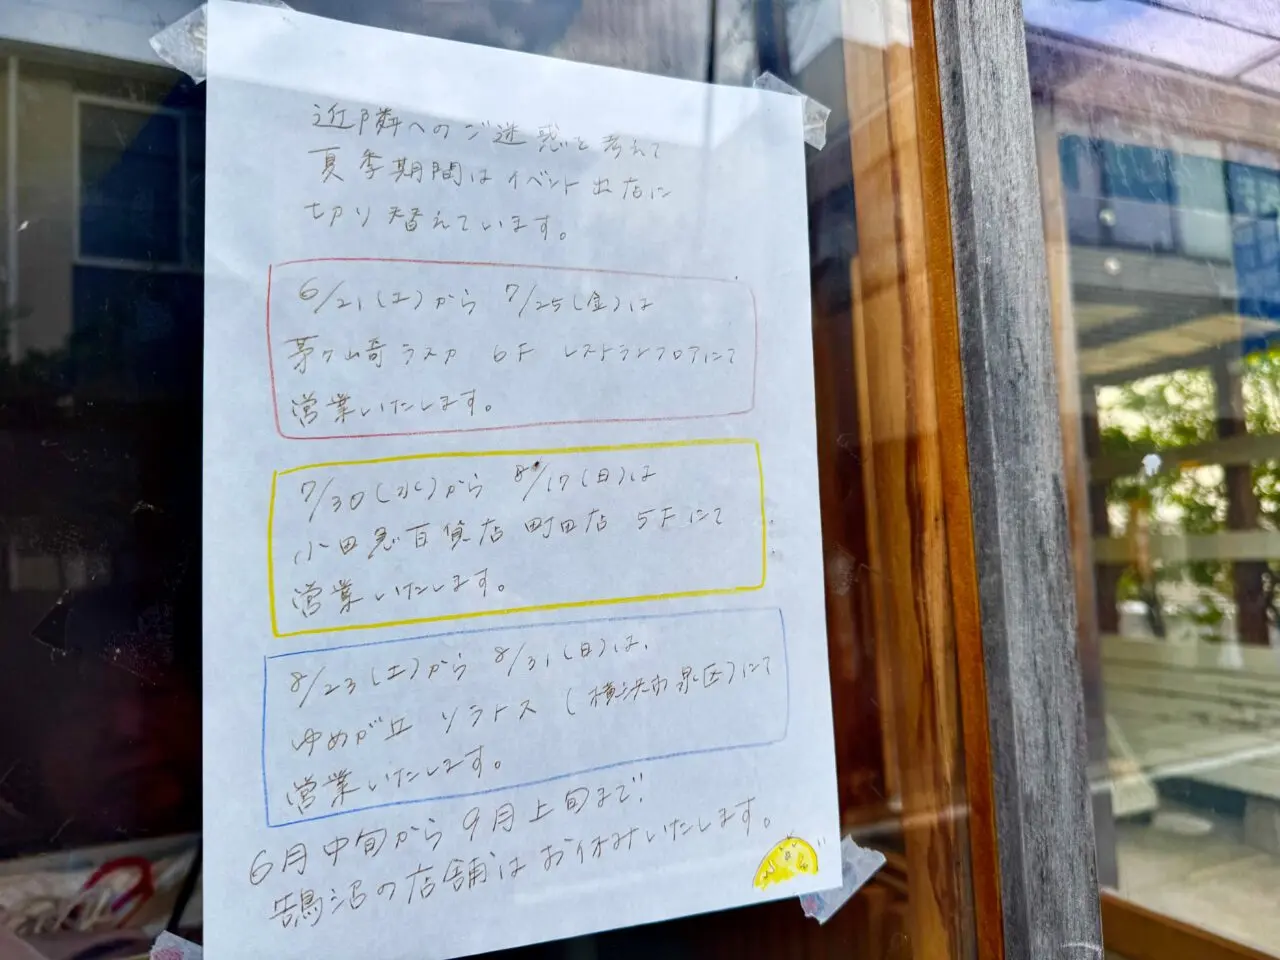 近隣へのご迷惑を考えて
夏季期間はイベント出店に
切り替えています。
6/21(土)から 7/25(金)は
茅ヶ崎ラスカ 6F レストランフロアにて
営業いたします。
7/30(水)から 8/17(日)は
小田急百貨店 町田店 5Fにて
営業いたします。
8/23(土)から 8/31(日)は、
ゆめが丘 ソラトス (横浜市泉区)にて
営業いたします。
6月中旬から9月上旬まで、
鵠沼の店舗はお休みいたします。